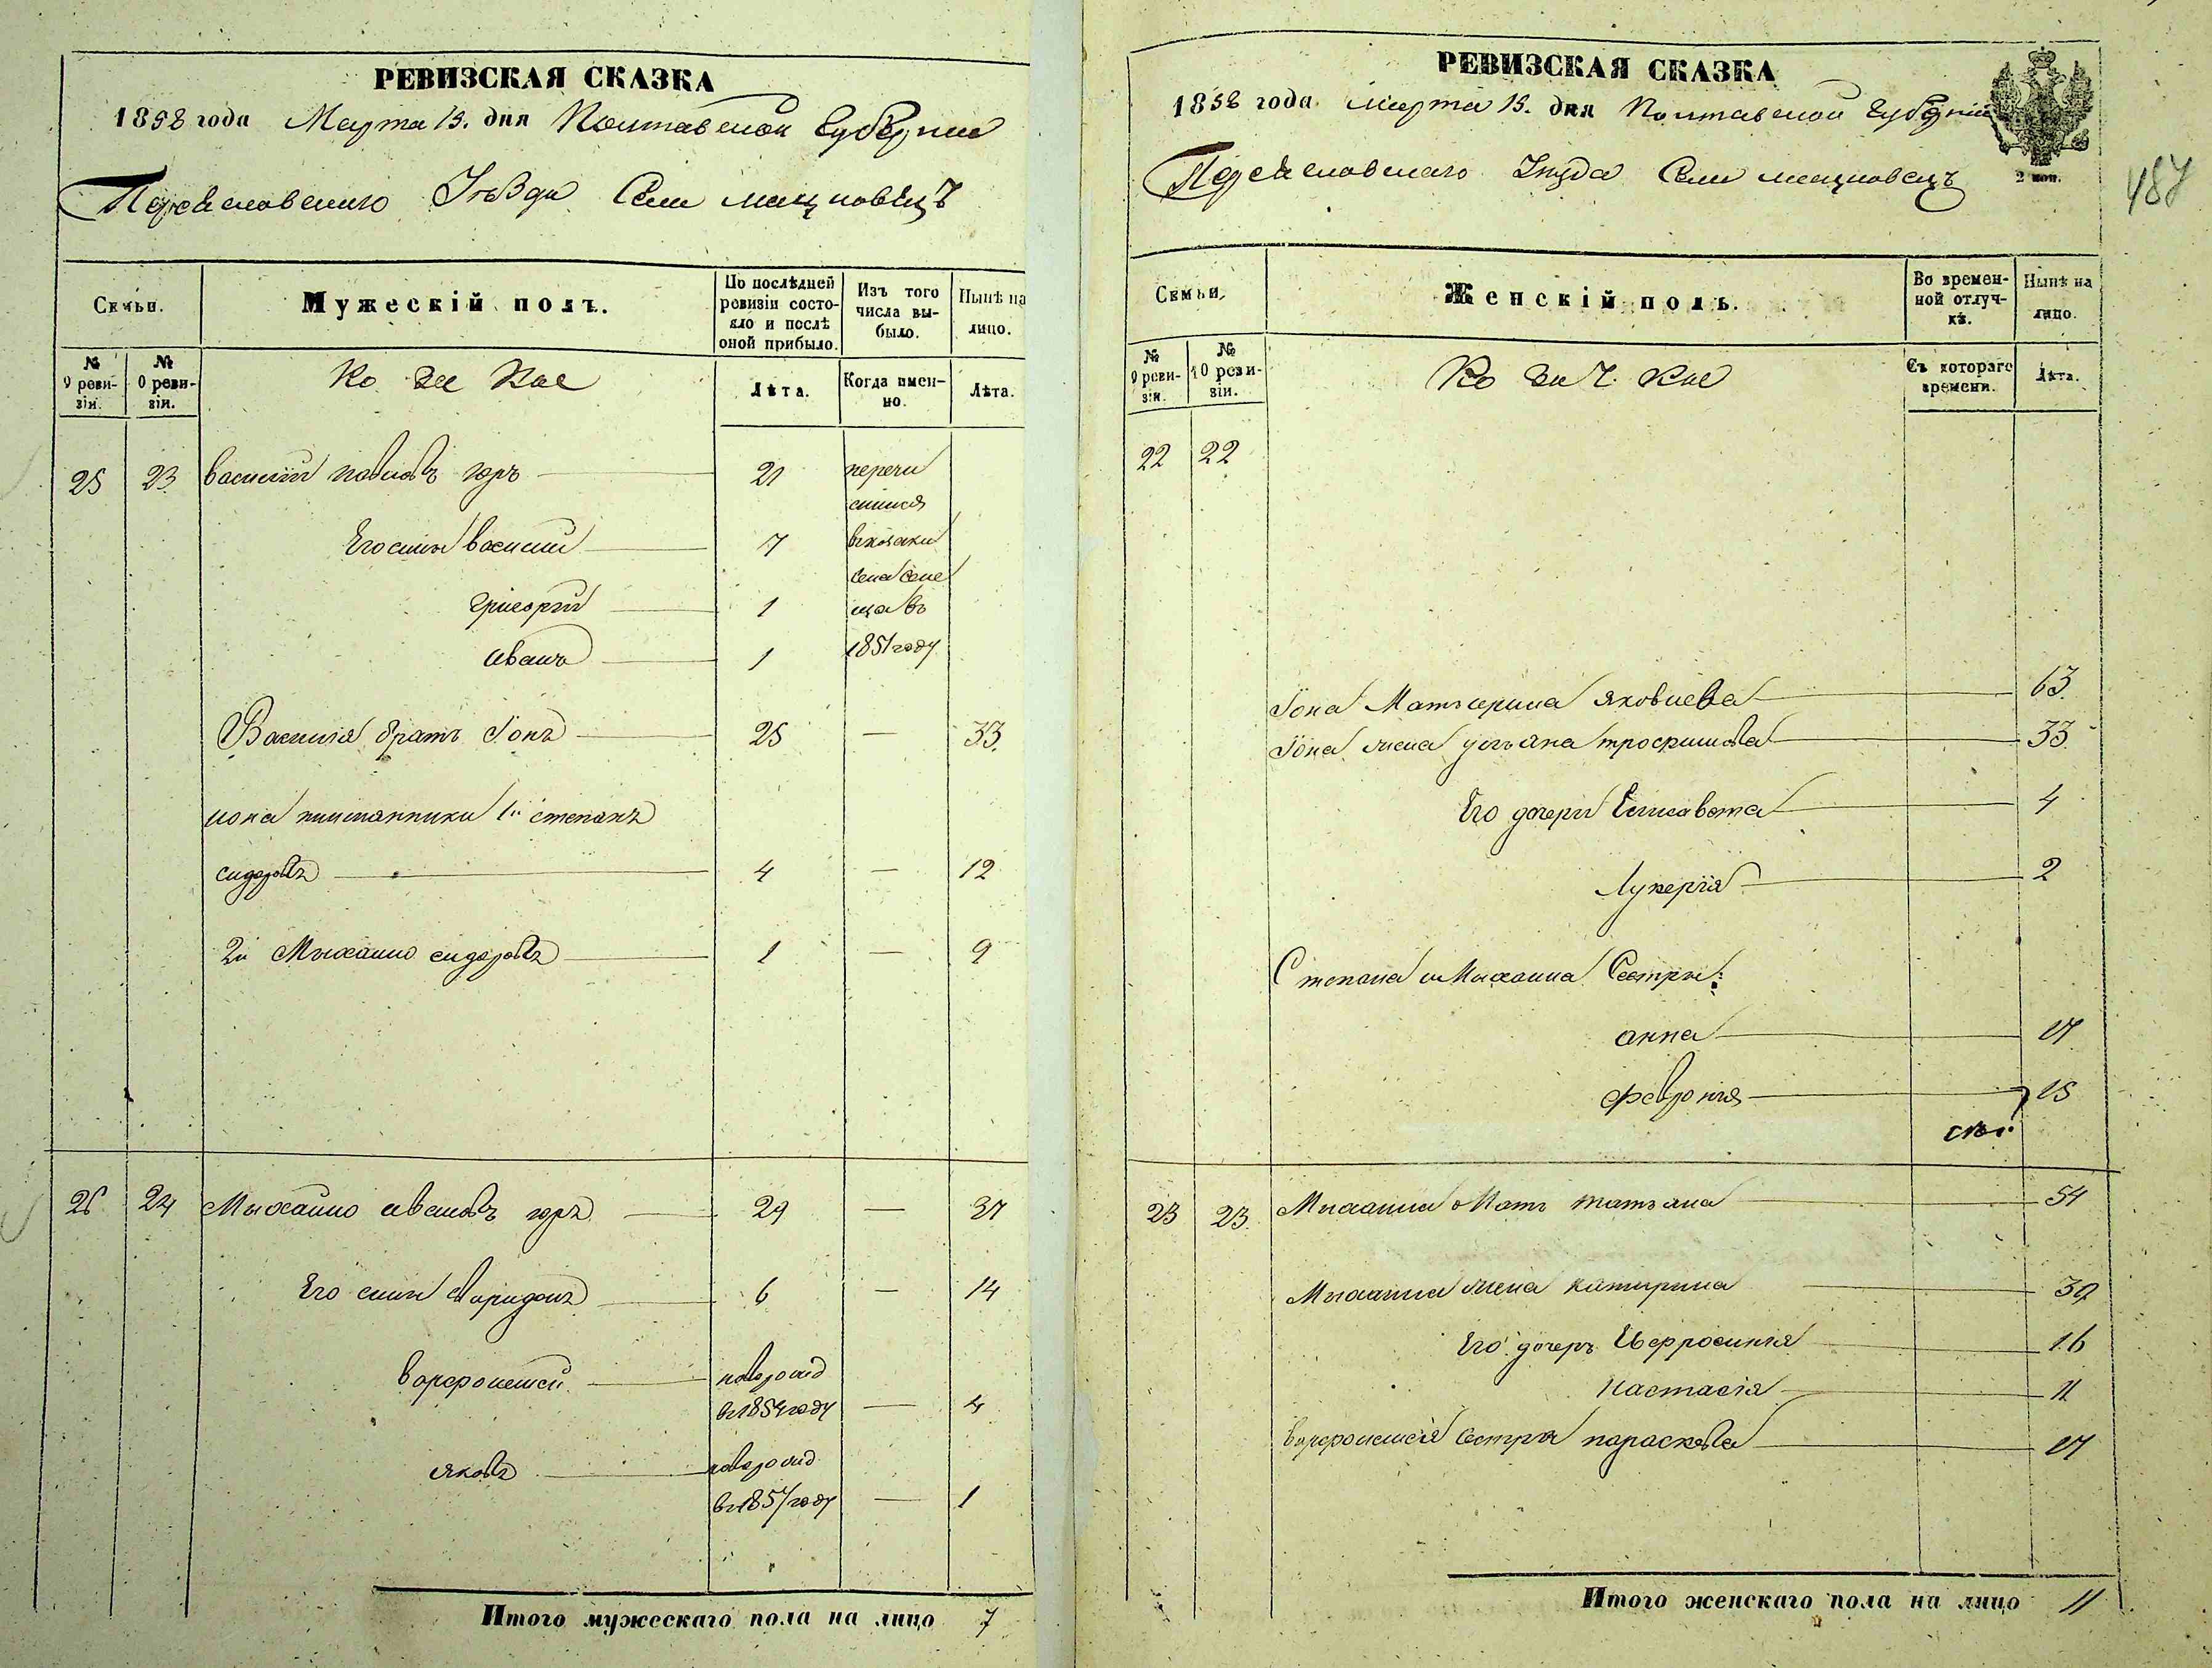 РЕВИЗСКАЯ СКАЗКА
1858 года Марта 15. дня Полтавской Губернии
Переяславского Уѣзда Села мацковецъ
Семьи.
Мужескій полъ.
По послѣдней ревизіи состояло и послѣ оной прибыло.
Изъ того числа выбыло.
Нынѣ на лицо.
№ 9 ревизіи.
№ 0 ревизіи.
Ко за кае
Лѣта.
Когда именно.
Лѣта.
25 23 василій павловъ горъ 21 перечи
слился
Его сини василий 7 вкозаки
села сене
григорий 1 ща въ
иванъ 1 1851 году
Василия братъ Іонъ 25 — 33.
иона племянники 1й степанъ
сидоровъ 4 — 12
2й Михайло сидоровъ 1 — 9
26 24 Михайло ивановъ горъ 29 — 37
Его сини Спиридонъ 6 — 14
варфоломей новорожд
въ 1854 году — 4
яковъ новорожд
въ 1857 году — 1
Итого мужескаго пола на лицо 7
РЕВИЗСКАЯ СКАЗКА
1858 года Марта 15. дня Полтавской Губерніи
Переяславскаго Уезда Села мацковецъ
2 коп.
487
Семьи,
Женскій полъ.
Во временной отлучкѣ.
Нынѣ на лицо.
№ 9 ревизіи.
№ 10 ревизіи.
Ко за ч. кае
Съ котораго времени.
Лѣта.
22 22
Іона Мать ирина яковлева 63.
Іона жена ульяна трофимова 33
Его дочери Елисавета 4
Лукерія 2
Степана и Михаила Сестри:
анна 17
февронія 15
23 23. Михаила Мать татьяна 54
Михаила жена катирина 39
Его дочерь Евфросинія 16
настасія 11
варфоломея сестра параскева 17
Итого женскаго пола на лицо 11